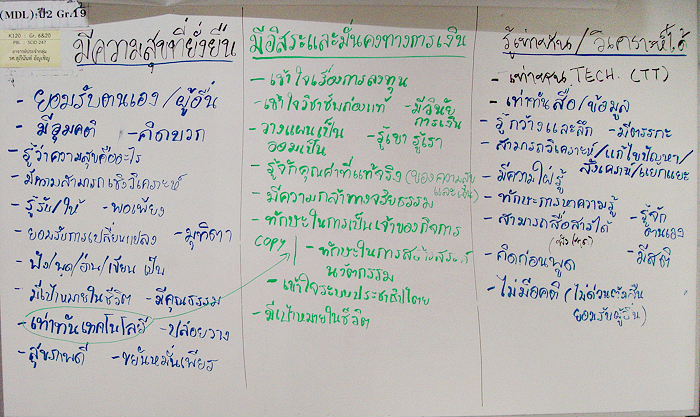 (MDL) ปี2 Gr.19
K120 : Gr. 6&20
PBL : SCID 247
มีความสุขที่ยั่งยืน
- ยอมรับตนเอง / ผู้อื่น
- มีอุมคติ - คิดบวก
- รู้ว่าความสุขคืออะไร
- มีความสามารถเชิงวิเคราะห์
- รู้รับ/ให้ - พอเพียง
- ยอมรับการเปลี่ยนแปลง - มุทิตา
- ฟัง/พูด/อ่าน/เขียน เป็น
- มีเป้าหมายในชีวิต - มีคุณธรรม
- เท่าทันเทคโนโลยี - ปล่อยวาง
- สุขภาพดี - ขยันหมั่นเพียร
มีอิสระและมั่นคงทางการเงิน
- เข้าใจเรื่องการลงทุน
- เข้าใจวิชาชีพถ่องแท้ - มีวินัยการเงิน
- วางแผนเป็น - รู้เขา รู้เรา
ออมเป็น
- รู้จักคุณค่าที่แท้จริง (ของความจริงและเงิน)
- มีความกล้าทางจริยธรรม
- ทักษะในการเป็นเจ้าของกิจการ
COPY - ทักษะในการสร้างสรรค์
นวัตกรรม
- เข้าใจระบบประชาธิปไตย
- มีเป้าหมายในชีวิต
รู้เท่าทัน / วิเคราะห์ได้
- เท่าทัน TECH. (TT)
- เท่าทันสื่อ / ข้อมูล
- รู้กว้างและลึก - มีตรรกะ
- สามารถวิเคราะห์/แก้ไขปัญหา/
สังเคราะห์/แยกแยะ
- มีความใฝ่รู้
- ทักษะการหาความรู้
- สามารถสื่อสารได้ - รู้จักตนเอง
- คิดก่อนพูด - มีสติ
- ไม่มีอคติ (ไม่ด่วนตัดสิน
ยอมรับผู้อื่น)